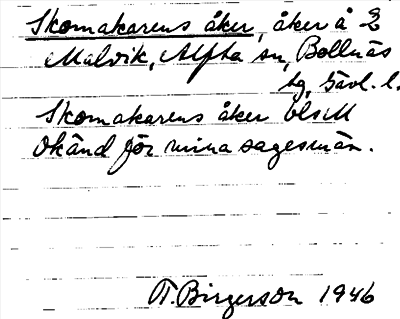 Skomakarens åker, åker å
Malvik, Alfta sn, Bollnäs
tg, Gävl. l.
Skomakarens åker
Okänd för mina sagesmän.
T. Birgerson 1946